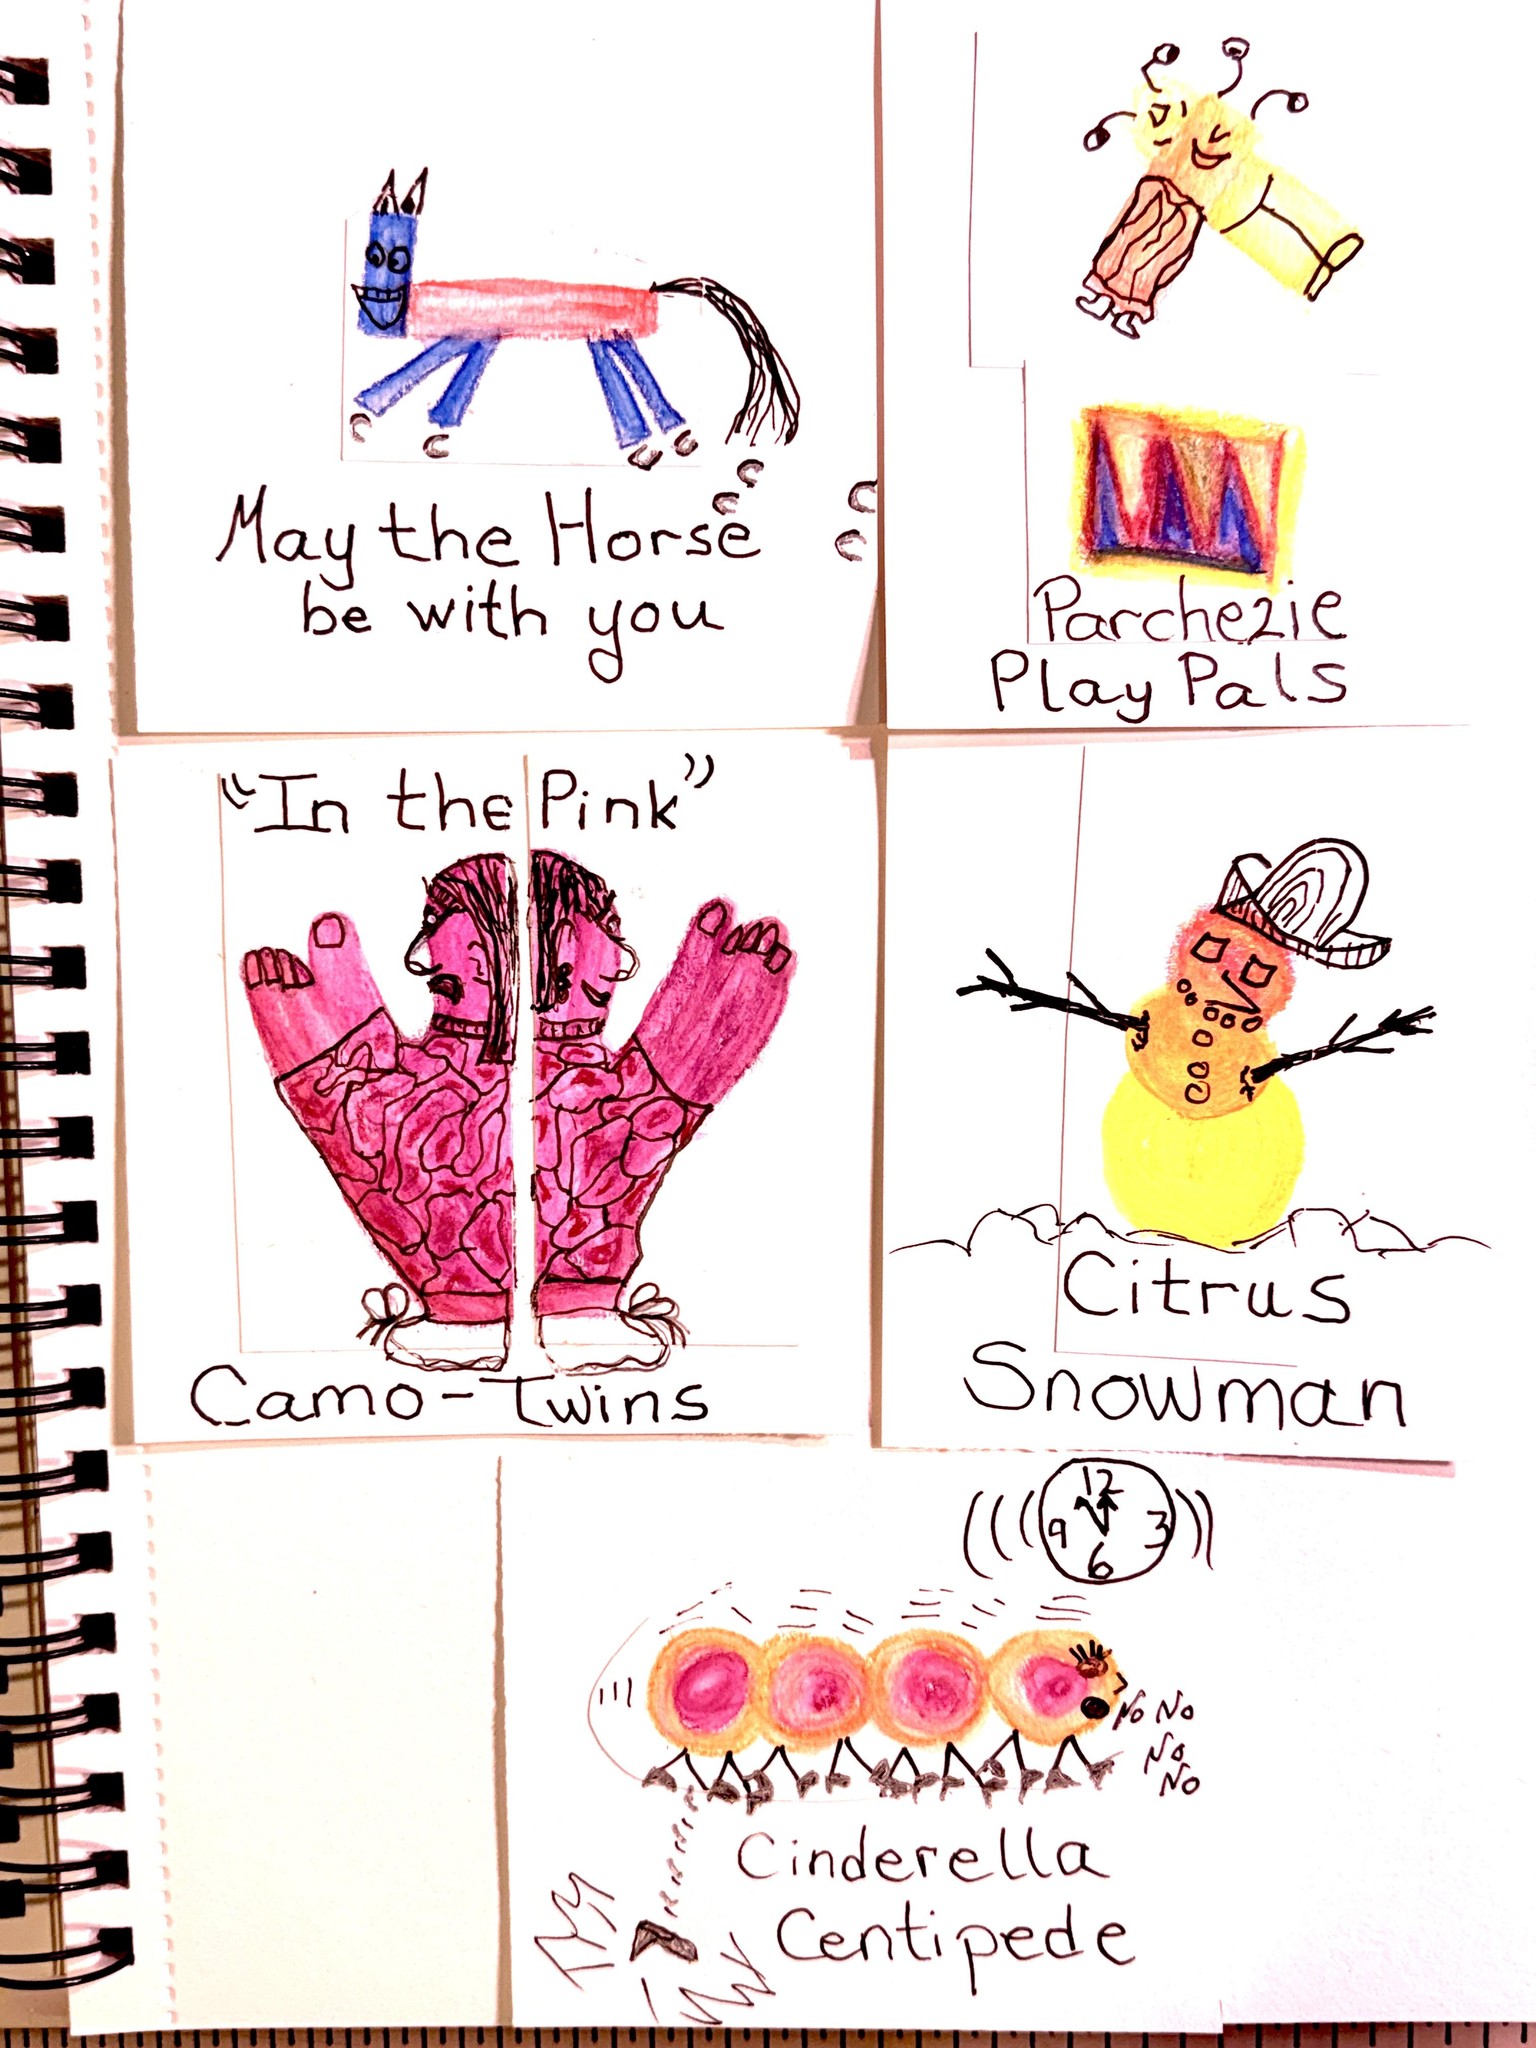 May the Horse
be with you
Parchezie
Play Pals
"In the Pink"
Camo-Twins
Citrus
Snowman
12
9 3
6
No No
No
No
Cinderella
Centipede